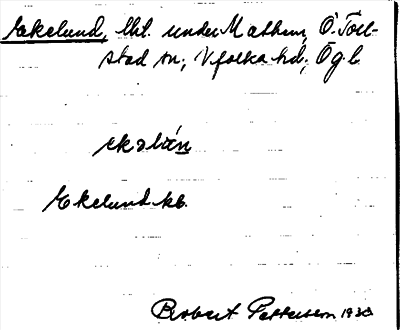 Ekelund, lht. under Mathem, Ö. Toll-
stad sn; Vifolka hd; Ög. l.
ekəlún
Ekelund kb.
Robert Pettersson 1930